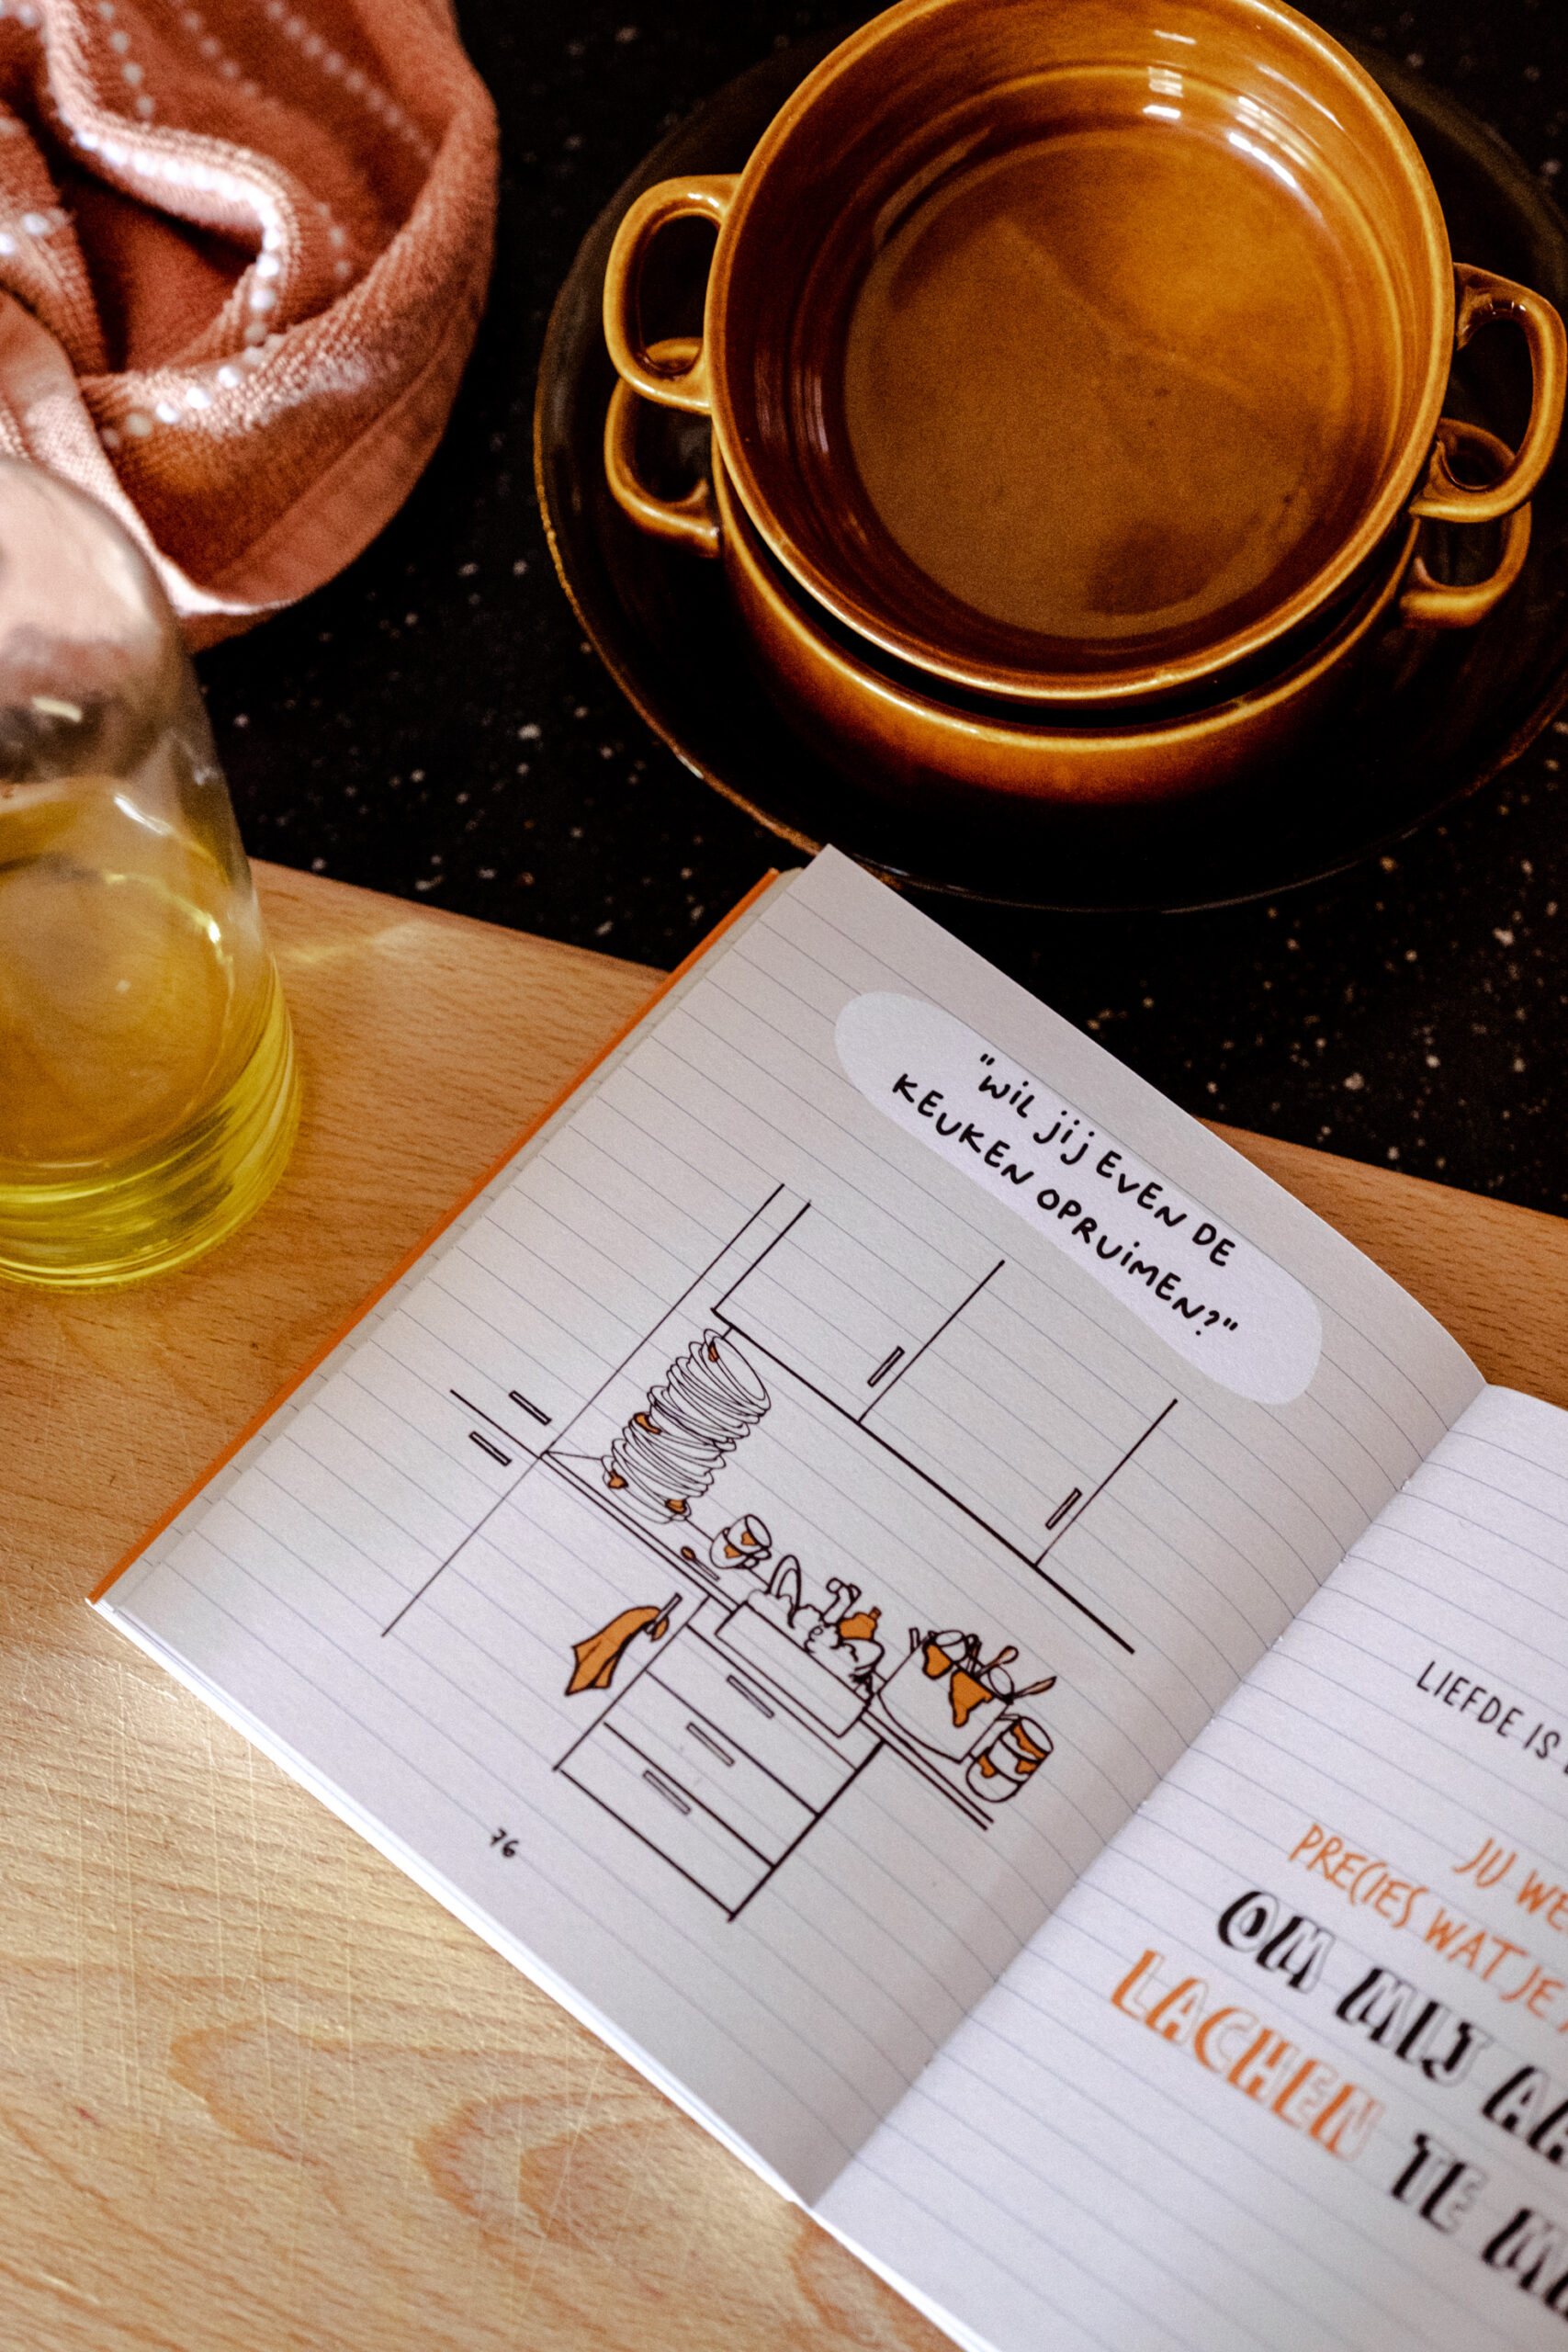 "WIL JIJ EVEN DE
KEUKEN OPRUIMEN?"
76
LIEFDE IS
JIJ
PRECIES WAT JE
OM MIJ
LACHEN TE